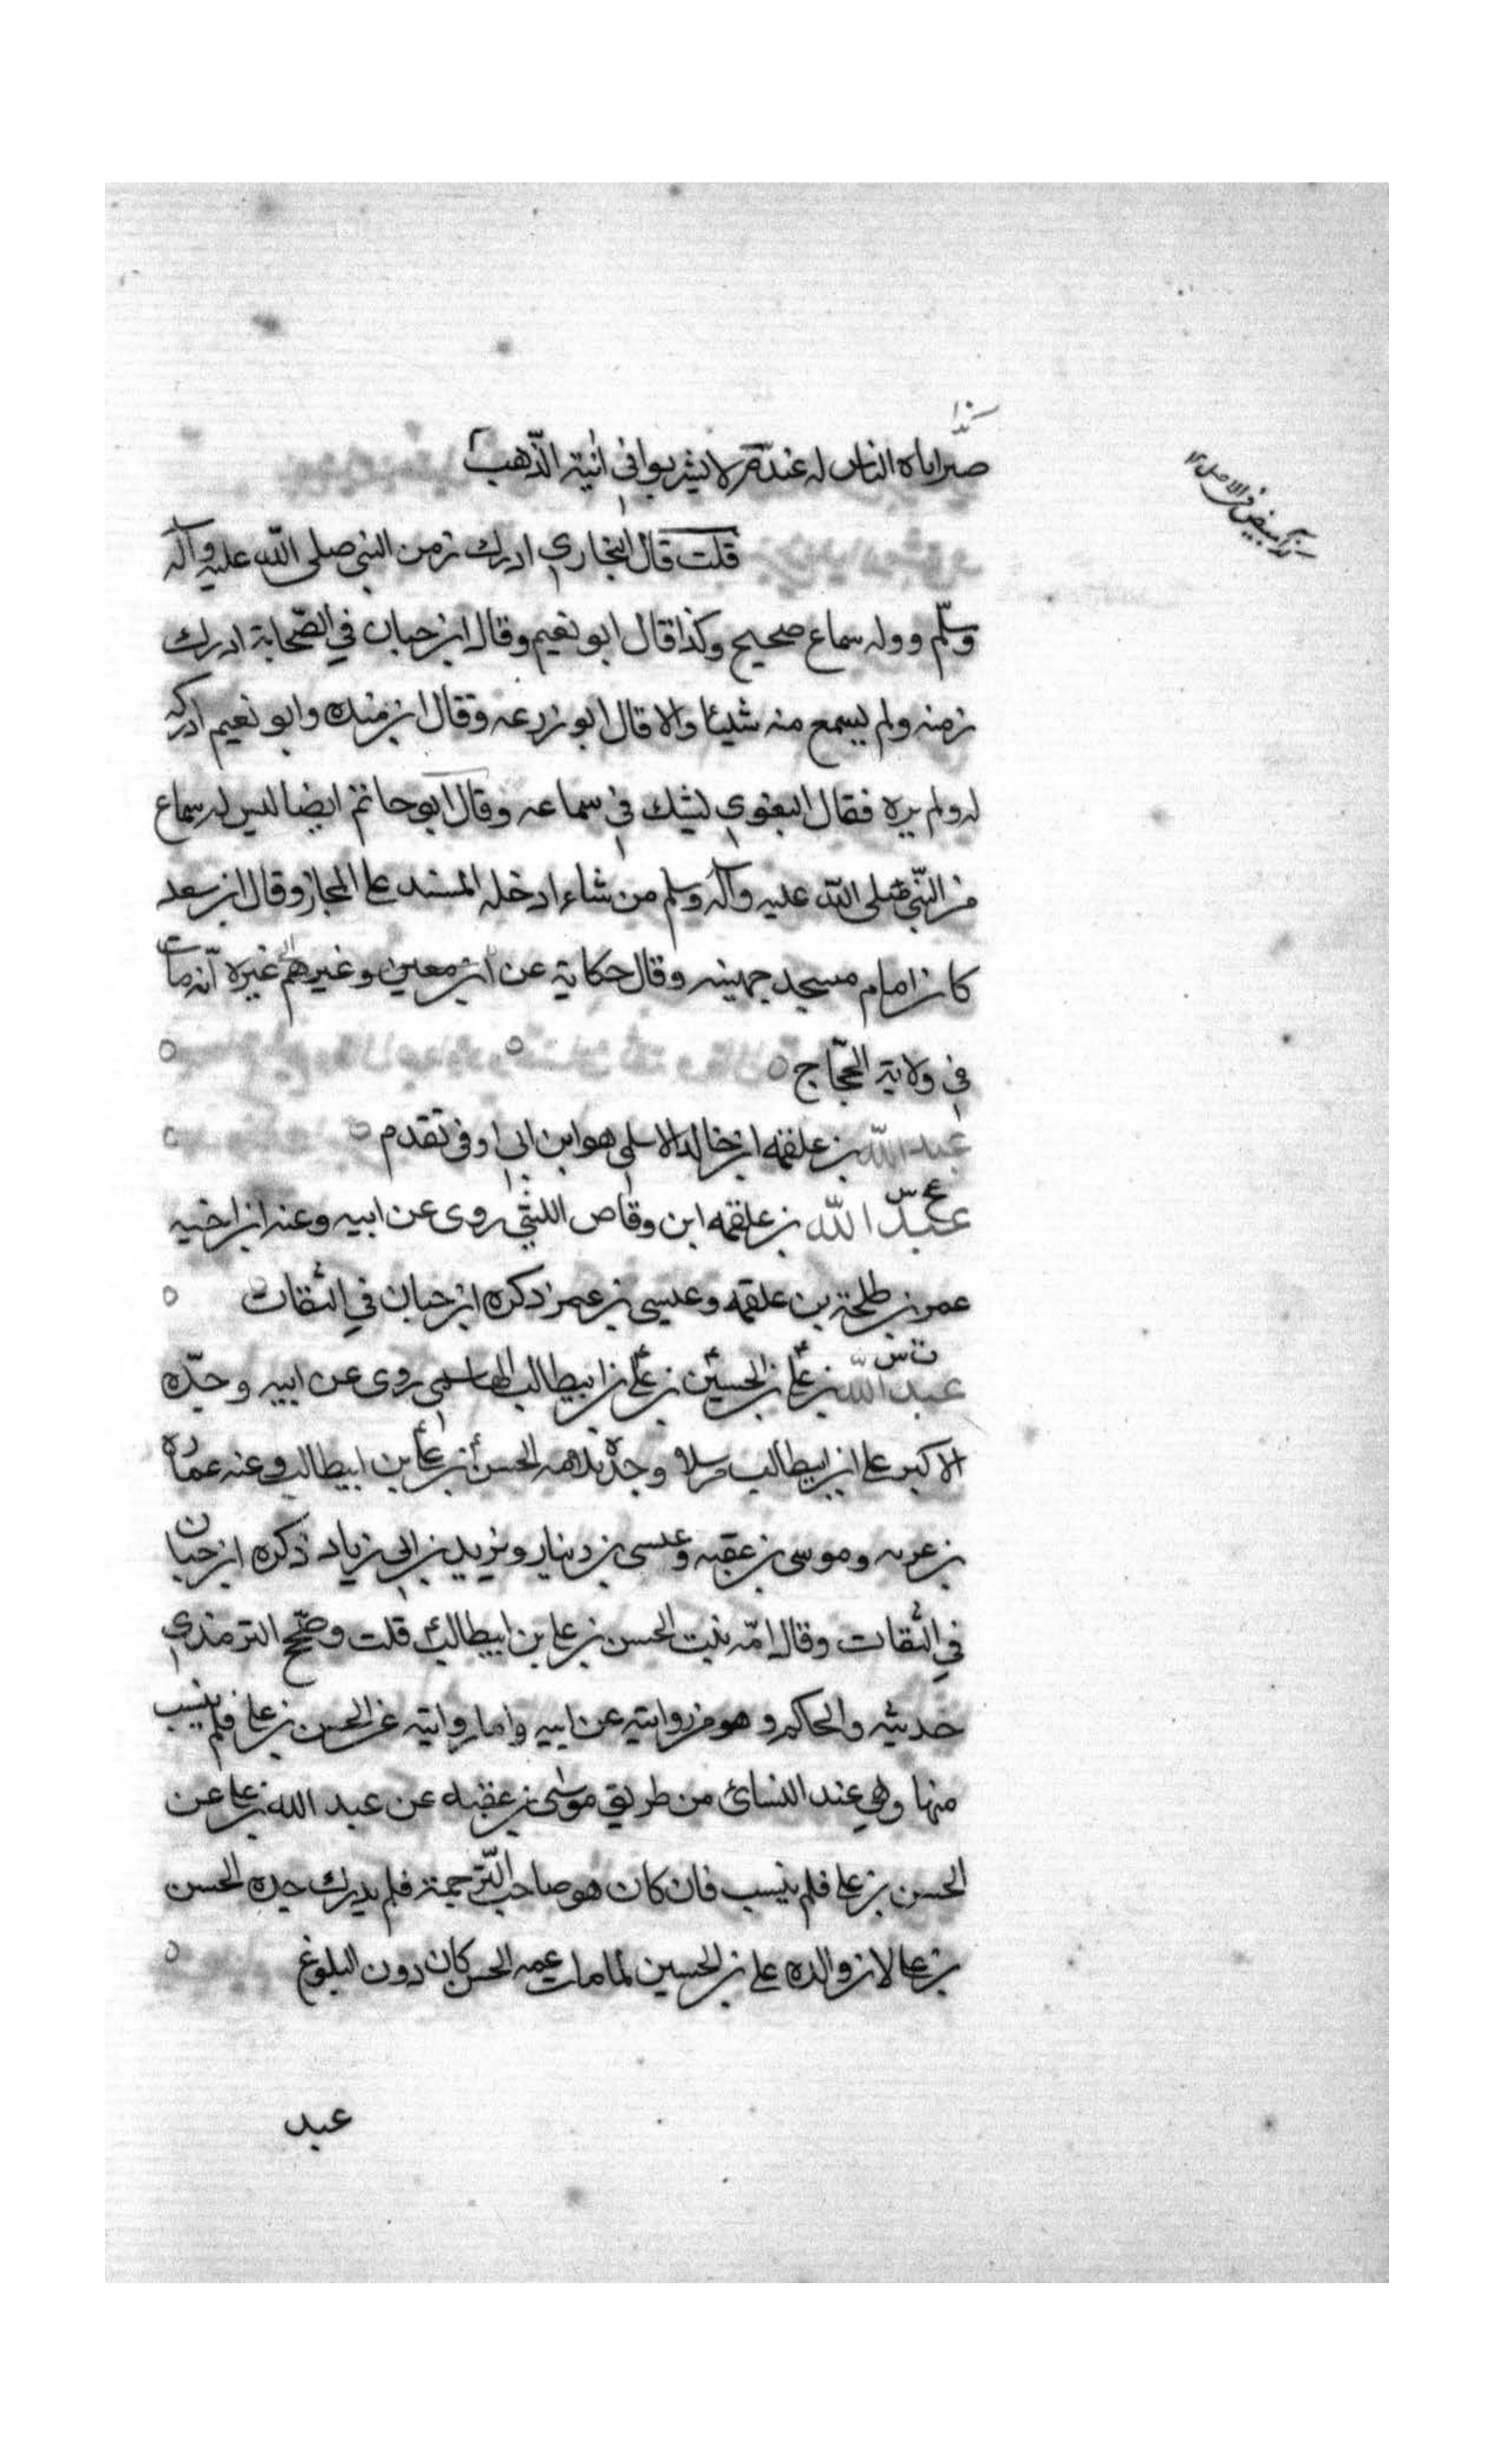 لا يشربوا في انية الذهب
قلت قال البخاري ادرك زمن النبي صلى الله عليه وآله
وسلم وله سماع صحيح وكذا قال ابو نعيم وقال ابن حبان في الصحابة ادرك
زمنه ولم يسمع منه شيئا والا قال ابو زرعه وقال ابن منده وابو نعيم ادركه
له ولم يره فقال البغوي ليشك في سماعه وقال ابو حاتم ايضا ليس له سماع
من النبي صلى الله عليه وآله وسلم من شاء ادخله المسند على المجاز وقال ابن سعد
كان امام مسجد جهينه وقال حكاية عن ابن معين وغيرهم غيره انه مات
في ولاية الحجاج
عبد الله بن علقمه ابن خالد الاسلمي هو ابن ابي اوفى تقدم
عس
عبد الله بن علقمه ابن وقاص الليثي روى عن ابيه وعنه ابن اخيه
عمر بن طلحة بن علقمه وعيسى بن عمر ذكره ابن حبان في الثقات
ت س
عبد الله بن علي بن الحسين بن علي بن ابيطالب الهاشمي روى عن ابيه وجده
الاكبر علي ابن ابيطالب مرسلا وجده لامه الحسن بن علي بن ابيطالب وعنه عماره
بن عزيه وموسى بن عقبه وعيسى بن دينار ويزيد بن ابي زياد ذكره ابن حبان
في الثقات وقال امه بنت الحسن بن علي بن ابيطالب قلت وصحح الترمذي
حديثه والحاكم وهو من روايته عن ابيه واما روايته عن الحسن بن علي فلم ينسب
منها وهي عند النسائ من طريق موسى بن عقبه عن عبد الله بن علي عن
الحسن بن علي فلم ينسب فان كان هو صاحب الترجمة فلم يدرك جده الحسن
بن علي لان والده علي بن الحسين لما مات عمه الحسن كان دون البلوغ
عبد